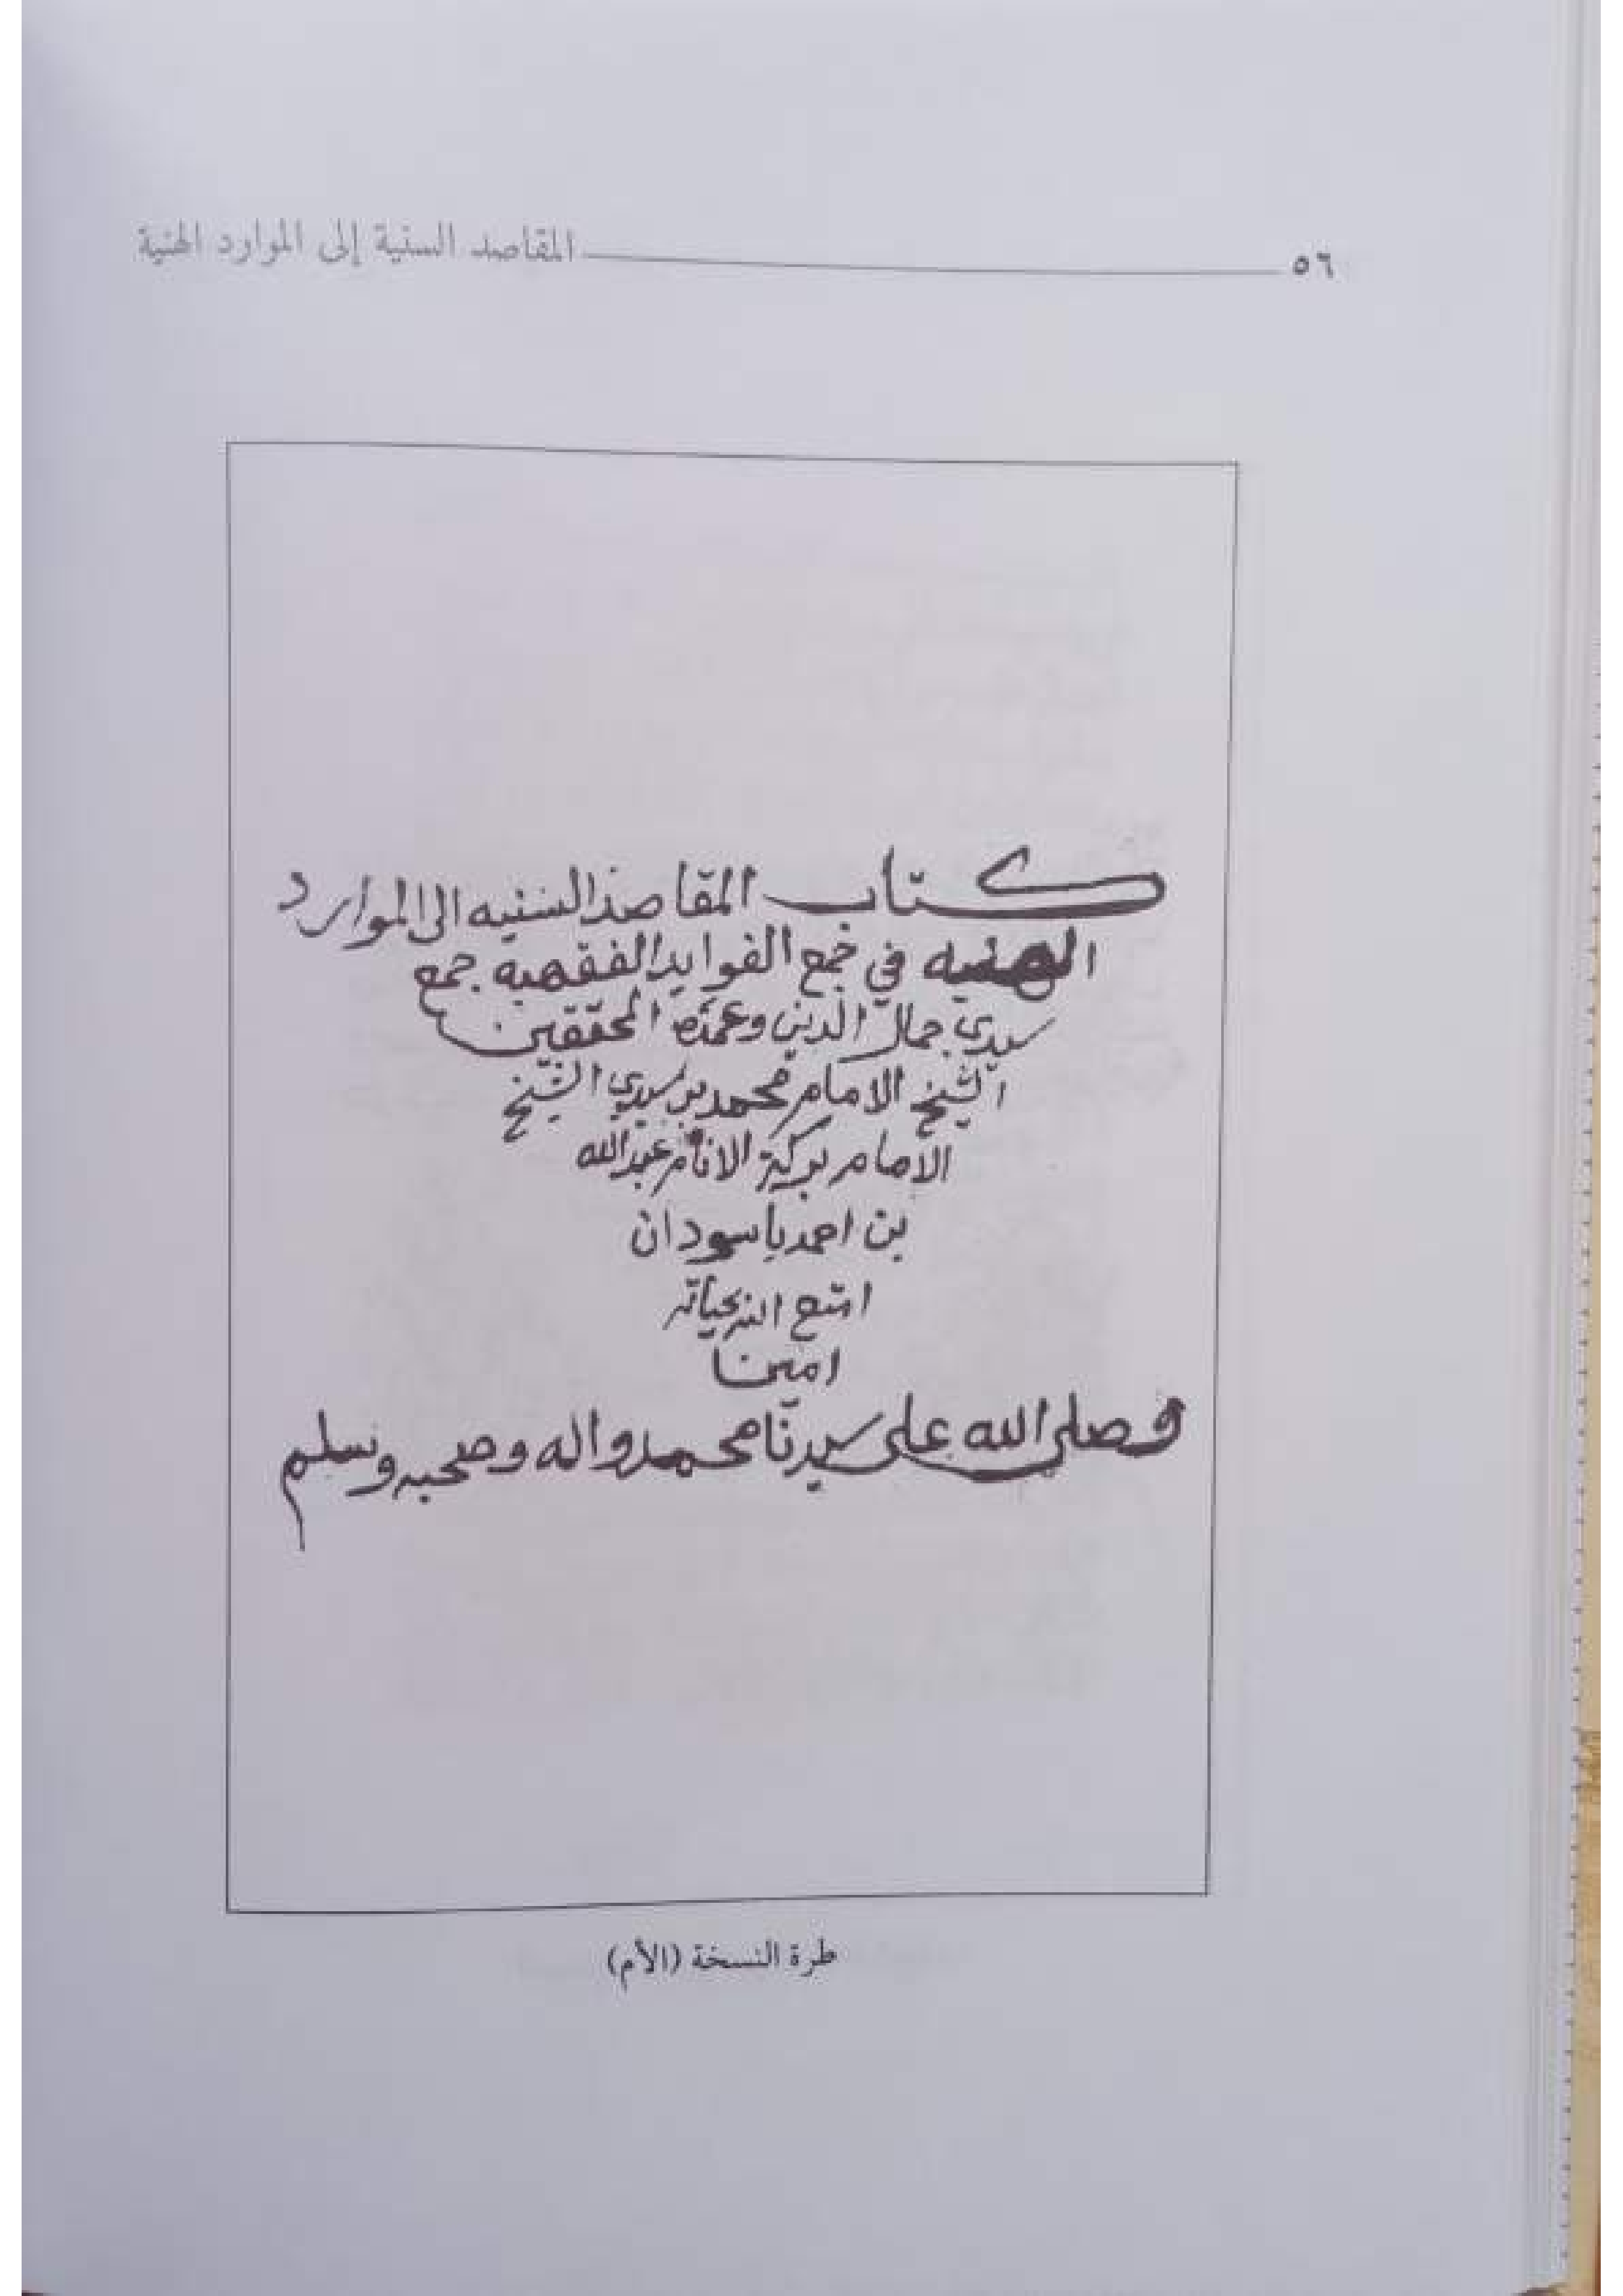 ٥٦ المقاصد السنية إلى الموارد الهنية
كتاب المقاصد السنيه الى الموارد
الهنيه في جمع الفوايد الفقهيه جمع
سيدي جمال الدين وعمدة المحققين
الشيخ الامام محمد بن سيدي الشيخ
الامام بركة الانام عبدالله
بن احمد باسودان
امتع الله بحياته
امينا
وصلى الله على سيدنا محمد واله وصحبه وسلم
طرة النسخة (الأم)